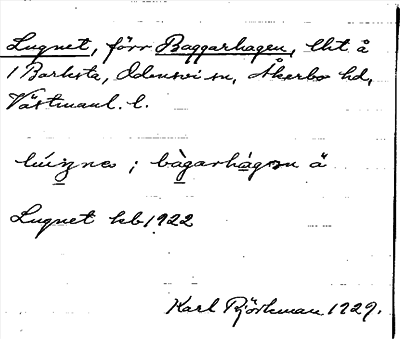 Lugnet, förr Baggarhagen, lht å
1 Barksta, Odensvi sn, Åkerbo hd,
Västmanl. l.
; å
Lugnet kb 1922
Karl Björkman 1929.